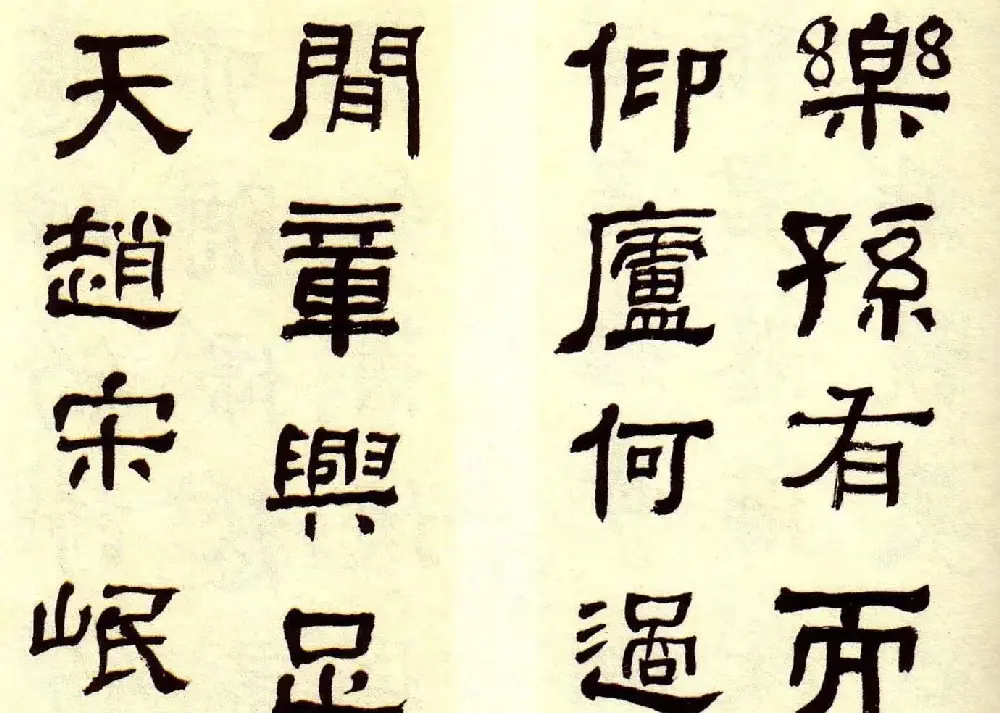 樂孫有而
仰廬何過
閒章興足
天趙宋岷